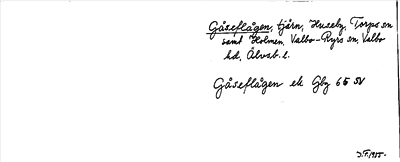 Gåseflågen, tjärn, Huseby, Torps sn
samt Holmen, Valbo-Ryrs sn, Valbo
hd, Älvsb. l.
Gåseflågen ek Gbg 65 SV
J.F. 1955.